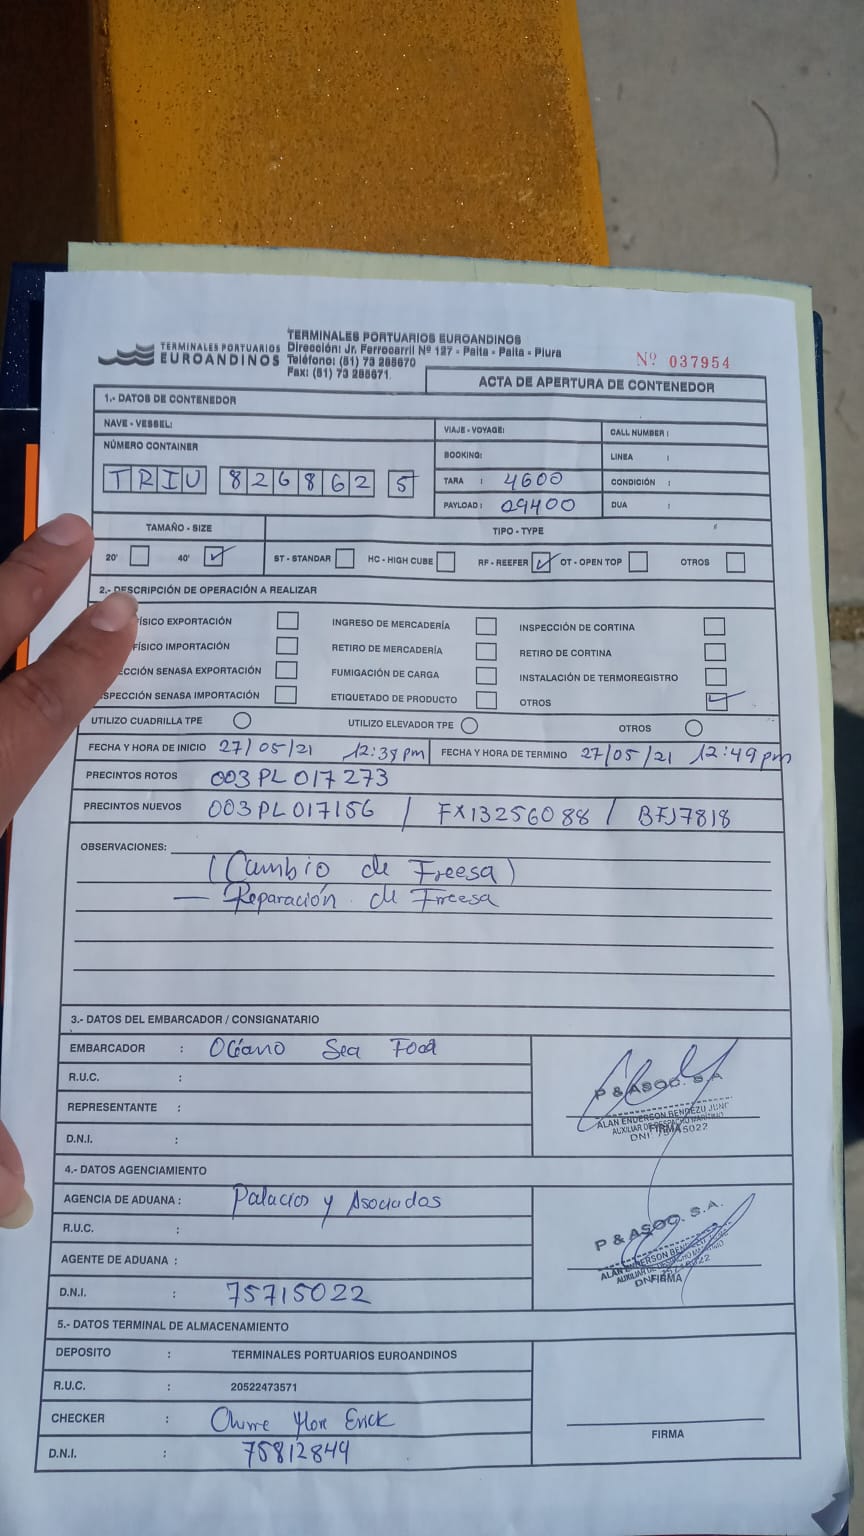 TERMINALES PORTUARIOS
EUROANDINOS
TERMINALES PORTUARIOS EUROANDINOS
Dirección: Jr. Ferrocarril Nº 127 - Paita - Paita - Piura
Teléfono: (51) 73 285670
Fax: (51) 73 285671
Nº 037954
ACTA DE APERTURA DE CONTENEDOR
1.- DATOS DE CONTENEDOR
NAVE - VESSEL:
VIAJE - VOYAGE:
CALL NUMBER :
NÚMERO CONTAINER
BOOKING:
LINEA :
TRIU 826862 5
TARA : 4600
CONDICIÓN :
PAYLOAD : 29400
DUA :
TAMAÑO - SIZE
TIPO - TYPE
20' 40' ST - STANDAR HC - HIGH CUBE RF - REEFER OT - OPEN TOP OTROS
2.- DESCRIPCIÓN DE OPERACIÓN A REALIZAR
ÍSICO EXPORTACIÓN INGRESO DE MERCADERÍA INSPECCIÓN DE CORTINA
FÍSICO IMPORTACIÓN RETIRO DE MERCADERÍA RETIRO DE CORTINA
CCIÓN SENASA EXPORTACIÓN FUMIGACIÓN DE CARGA INSTALACIÓN DE TERMOREGISTRO
SPECCIÓN SENASA IMPORTACIÓN ETIQUETADO DE PRODUCTO OTROS
UTILIZO CUADRILLA TPE UTILIZO ELEVADOR TPE OTROS
FECHA Y HORA DE INICIO 27/05/21 12:38 pm FECHA Y HORA DE TERMINO 27/05/21 12:49 pm
PRECINTOS ROTOS 003 PL 017273
PRECINTOS NUEVOS 003 PL 017156 / FX13256088 / BFJ7818
OBSERVACIONES:
(Cambio de Freesa)
— Reparación de Freesa
3.- DATOS DEL EMBARCADOR / CONSIGNATARIO
EMBARCADOR : Océano Sea Food
R.U.C. :
REPRESENTANTE :
D.N.I. :
P & ASOC. S.A
ALAN ENDERSON BENDEZU
FIRMA
4.- DATOS AGENCIAMIENTO
AGENCIA DE ADUANA : Palacios y Asociados
R.U.C. :
AGENTE DE ADUANA :
D.N.I. : 75715022
P & ASOC. S.A.
ALAN ENDERSON BENDEZU
FIRMA
5.- DATOS TERMINAL DE ALMACENAMIENTO
DEPOSITO : TERMINALES PORTUARIOS EUROANDINOS
R.U.C. : 20522473571
CHECKER : Erick
D.N.I. : 75812849
FIRMA